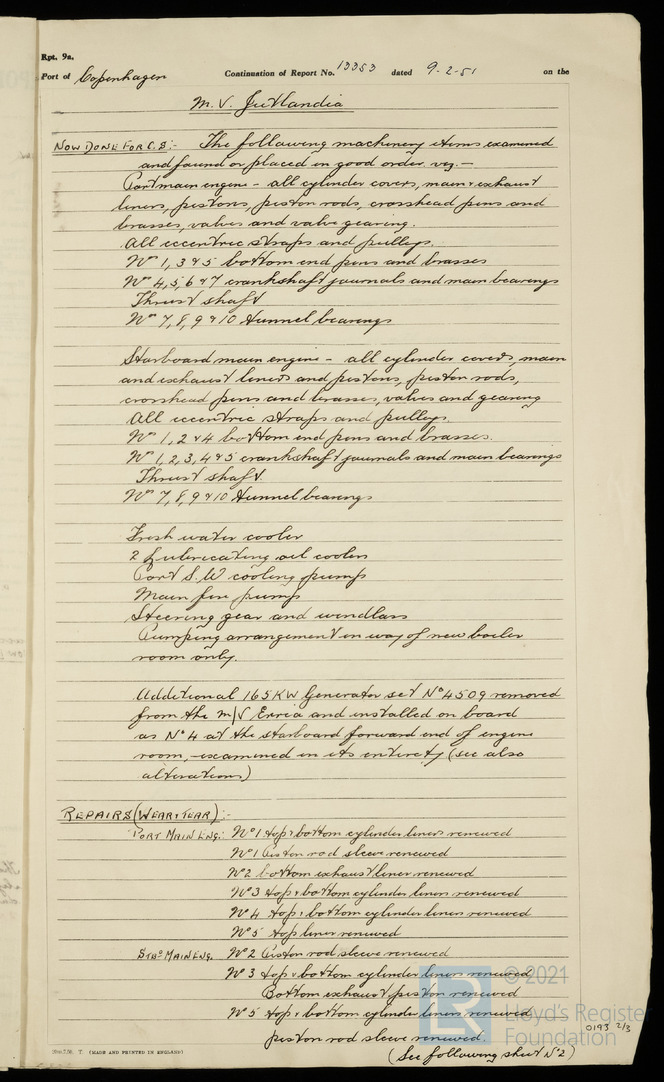 Rpt. 9a.
Port of Copenhagen Continuation of Report No. 13353 dated 9-2-51 on the
M.V. Jutlandia
NOW DONE FOR C.S:- The following machinery items examined
and found or placed in good order viz.-
Port main engine - all cylinder covers, main & exhaust
liners, pistons, piston rods, crosshead pins and
brasses, valves and valve gearing.
All eccentric straps and pulleys.
Nos 1, 3 & 5 bottom end pins and brasses
Nos 4, 5, 6 & 7 crankshaft journals and main bearings
Thrust shaft
Nos 7, 8, 9 & 10 tunnel bearings
Starboard main engine - all cylinder covers, main
and exhaust liners and pistons, piston rods,
crosshead pins and brasses, valves and gearing
All eccentric straps and pulleys.
Nos 1, 2 & 4 bottom end pins and brasses.
Nos 1, 2, 3, 4 & 5 crankshaft journals and main bearings
Thrust shaft.
Nos 7, 8, 9 & 10 tunnel bearings
Fresh water cooler
2 Lubricating oil coolers
Port S.W cooling pump
Main fire pump
Steering gear and windlass
Pumping arrangement in way of new boiler
room only.
Additional 165KW Generator set No 4509 removed
from the m/V Erria and installed on board
as No 4 at the starboard forward end of engine
room, examined in its entirety (see also
alterations)
REPAIRS (WEAR & TEAR):-
PORT MAIN ENG: No 1 top & bottom cylinder liners renewed
No 1 Piston rod sleeve renewed
No 2 bottom exhaust liner renewed
No 3 top & bottom cylinder liners renewed
No 4 top & bottom cylinder liners renewed
No 5 top liner renewed
STBD MAIN ENG. No 2 Piston rod sleeve renewed
No 3 top & bottom cylinder liners renewed
Bottom exhaust piston renewed
No 5 top & bottom cylinder liners renewed
piston rod sleeve renewed.
(See following sheet No 2)
T. (MADE AND PRINTED IN ENGLAND)
© 2021
LR
Lloyd's Register
Foundation
0193 2/3